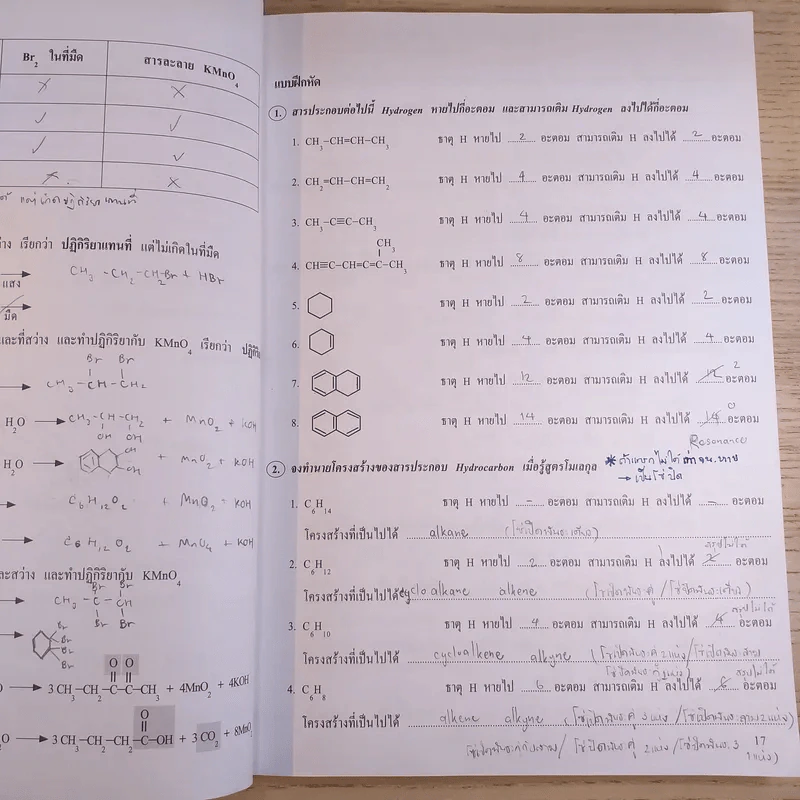 Br2 ในที่มืด
สารละลาย KMnO4
เรียกว่า ปฏิกิริยาแทนที่ แต่ไม่เกิดในที่มืด
CH3 -CH2-CH2Br + HBr
แสง
มืด
และที่สว่าง และทำปฏิกิริยากับ KMnO4 เรียกว่า
Br Br
CH3-CH-CH2
H2O CH3-CH-CH2 + MnO2 + KOH
OH OH
H2O OH OH + MnO2 + KOH
C6H12O2 + MnO2 + KOH
C6H12O2 + MnO4 + KOH
และสว่าง และทำปฏิกิริยากับ KMnO4
Br Br
CH3 - C - CH
Br Br
Br
Br
Br
Br
O O
3 CH3-CH2-C-C-CH3 + 4MnO2 + 4KOH
O
3 CH3-CH2-CH2-C-OH + 3 CO2 + 8MnO2
แบบฝึกหัด
1. สารประกอบต่อไปนี้ Hydrogen หายไปกี่อะตอม และสามารถเติม Hydrogen ลงไปได้กี่อะตอม
1. CH3-CH=CH-CH3 ธาตุ H หายไป 2 อะตอม สามารถเติม H ลงไปได้ 2 อะตอม
2. CH2=CH-CH=CH2 ธาตุ H หายไป 4 อะตอม สามารถเติม H ลงไปได้ 4 อะตอม
3. CH3-C≡C-CH3 ธาตุ H หายไป 4 อะตอม สามารถเติม H ลงไปได้ 4 อะตอม
CH3
4. CH≡C-CH=C=C-CH3 ธาตุ H หายไป 8 อะตอม สามารถเติม H ลงไปได้ 8 อะตอม
5. ธาตุ H หายไป 2 อะตอม สามารถเติม H ลงไปได้ 2 อะตอม
6. ธาตุ H หายไป 4 อะตอม สามารถเติม H ลงไปได้ 4 อะตอม
2
7. ธาตุ H หายไป 12 อะตอม สามารถเติม H ลงไปได้ 12 อะตอม
0
8. ธาตุ H หายไป 14 อะตอม สามารถเติม H ลงไปได้ 14 อะตอม
Resonance
2. จงทำนายโครงสร้างของสารประกอบ Hydrocarbon เมื่อรู้สูตรโมเลกุล
→ เป็นโซ่ปิด
1. C6H14 ธาตุ H หายไป - อะตอม สามารถเติม H ลงไปได้ - อะตอม
โครงสร้างที่เป็นไปได้ alkane (โซ่เปิดพันธะเดี่ยว)
สรุปไม่ได้
2. C6H12 ธาตุ H หายไป 2 อะตอม สามารถเติม H ลงไปได้ 2 อะตอม
โครงสร้างที่เป็นไปได้ cycloalkane alkene (โซ่เปิดพันธะคู่ / โซ่ปิดพันธะเดี่ยว)
สรุปไม่ได้
3. C6H10 ธาตุ H หายไป 4 อะตอม สามารถเติม H ลงไปได้ 4 อะตอม
โครงสร้างที่เป็นไปได้ cycloalkene alkyne (โซ่เปิดพันธะคู่ 2 แห่ง/โซ่เปิดพันธะสาม
สรุปไม่ได้
4. C6H8 ธาตุ H หายไป 6 อะตอม สามารถเติม H ลงไปได้ 6 อะตอม
โครงสร้างที่เป็นไปได้ alkene alkyne (โซ่เปิดพันธะคู่ 3 แห่ง / โซ่เปิดพันธะสาม 2 แห่ง)
โซ่เปิดพันธะคู่กับสาม / โซ่ปิดพันธะคู่ 2 แห่ง / โซ่ปิดพันธะ 3 1 แห่ง)
17